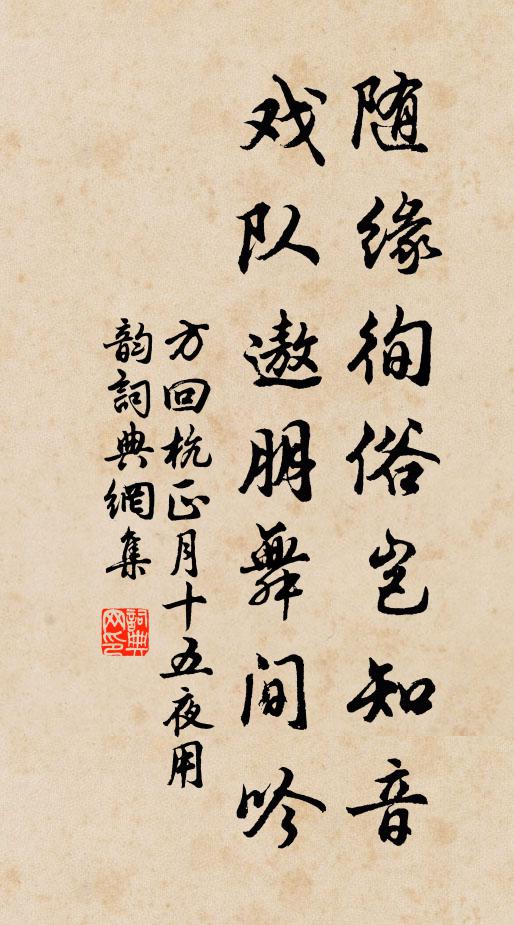 随缘徇俗岂知音
戏队遨朋舞间吟
方回杭正月十五夜用
韵词典网集
詞典
网印